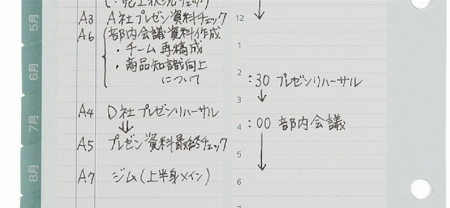 ・売上状況チェック
A3 A社プレゼン資料チェック
A6 部内会議資料作成
・チーム再構成
・商品知識向上
について
A4 D社プレゼンリハーサル
↓
A5 プレゼン資料最終チェック
A7 ジム(上半身メイン)
12
1
2 :30 プレゼンリハーサル
3
4 :00 部内会議
5
6
5月
6月
7月
8月